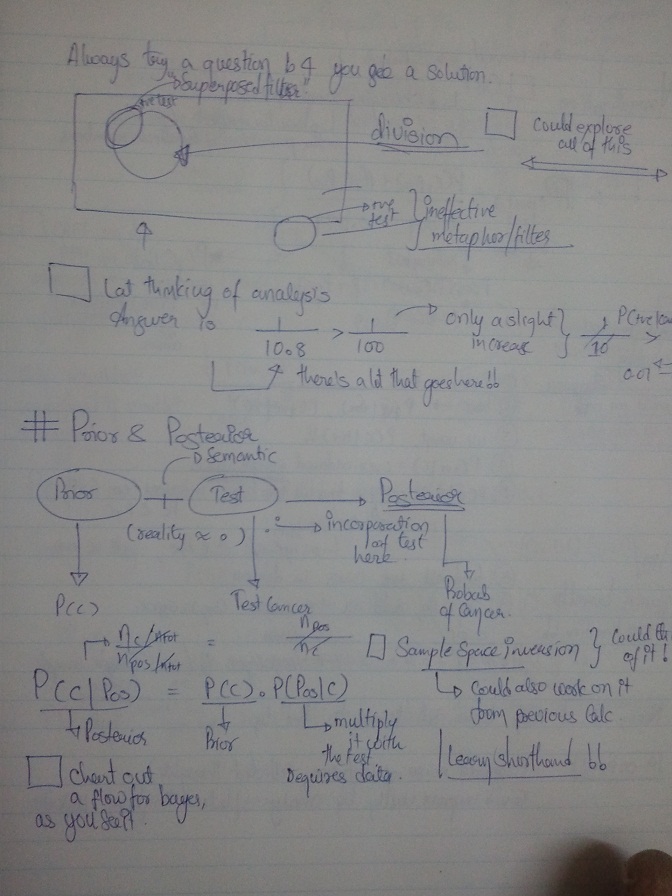 Always try a question b4 you see a solution.
Superposed filter
+ve test
division
could explore
all of this
+ve
test
ineffective
metaphor/filter
Lat thinking of analysis
Answer is 1/10.8 > 1/100
only a slight
increase
1/10
P(+ve|
>
0.01
there's a lot that goes here
# Prior & Posterior
Semantic
Prior + Test
Posterior
(reality ∝ 0)
incorporation
of test
here
P(C)
Test Cancer
Probab
of Cancer.
nc/ntot
npos/ntot
=
npos/nc
Sample Space inversion
could
of it!
P(C|Pos) = P(C) . P(Pos|C)
could also work on it
from previous Calc.
Posterior
Prior
multiply
it with
the test
Requires data.
Learn shorthand
chart out
a flow for bayes,
as you see it.